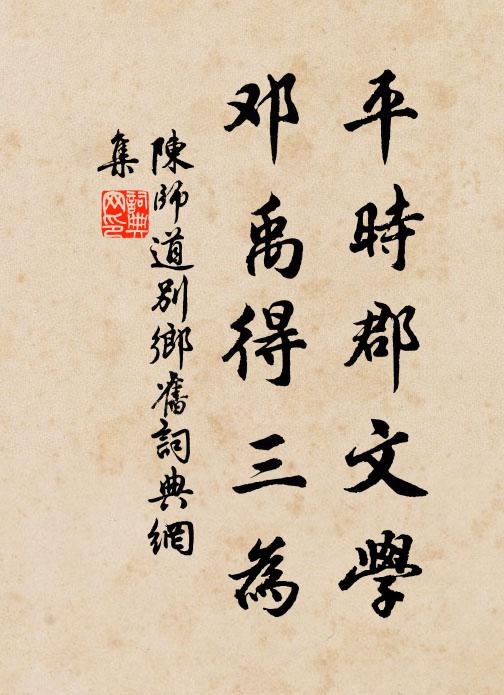 平時郡文學
邓禹得三為
陳師道別鄉舊詞典網
集
詞典網印